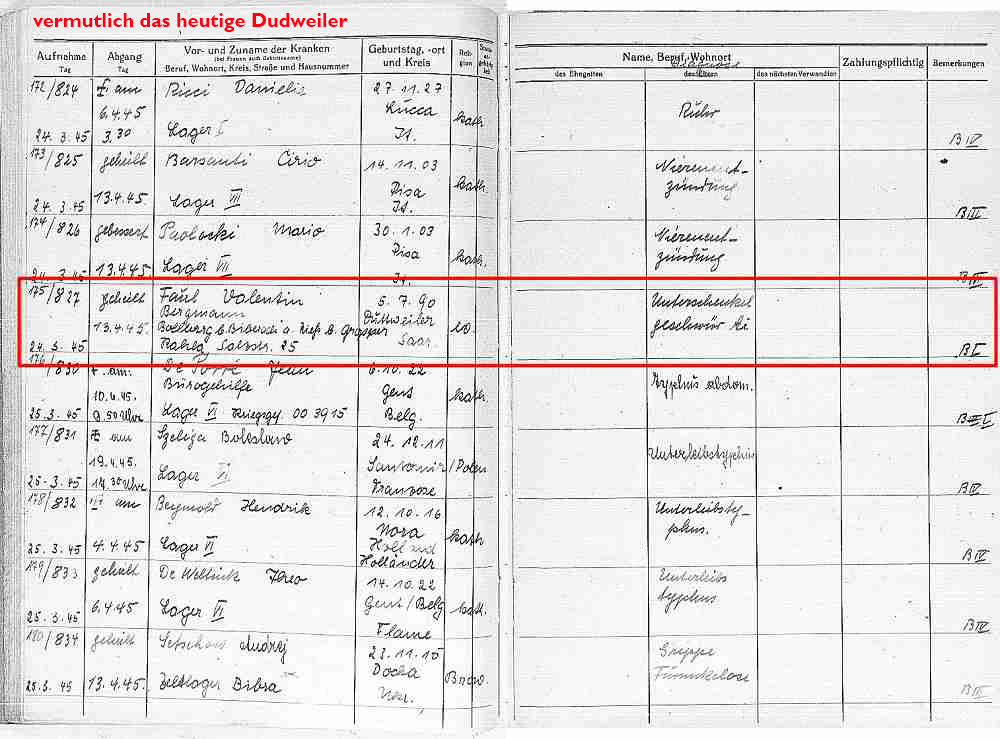 vermutlich das heutige Dudweiler
Aufnahme Tag
Abgang Tag
Vor- und Zuname der Kranken
(bei Frauen auch Geburtsname)
Beruf, Wohnort, Kreis, Straße und Hausnummer
Geburtstag, -ort und Kreis
Reli-gion
Name, Beruf, Wohnort
des Ehegatten
des Eltern
des nächsten Verwandten
Zahlungspflichtig
Bemerkungen
172/824 am Ricci Danielis 27.11.27
6.4.45 Lucca kath. Ruhr
24.3.45 3.30 Lager I It. B IV
173/825 geheilt Barsanti Cirio 14.11.03 Nierenent-
13.4.45 Pisa kath. zündung
24.3.45 Lager VII It. B III
174/826 gebessert Paolocki Mario 30.1.03 Nierenent-
13.4.45 Pisa kath. zündung
24.3.45 Lager VII It. B III
175/827 geheilt Faul Valentin 5.7.90 Unterschenkel
Bergmann Duttweiler geschwür
13.4.45. ev.
Saar.
24.3.45 25 B I
176/830 am: De Jean 6.10.22
Bürogehilfe Gent kath. Typhus abdom.
10.4.45.
25.3.45 9.50 Uhr Lager VI Kriegsgef. 003915 Belg.
177/831 am Szeliga Boleslaw 24.12.11
19.4.45. Unterleibstyphus
25.3.45 Lager VI Franzose B IV
178/832 am Hendrik 12.10.16 Unterleibsty-
Nora kath phus.
25.3.45 4.4.45 Lager VI Holland
Holländer B IV
179/833 geheilt De 14.10.22 Unterleibs
6.4.45 Gent/Belg kath. typhus
25.3.45 Lager VI Flame B IV
180/834 geheilt Andrej 23.11.15 Grippe
Furunkelose
25.3.45 13.4.45. Zeltlager Bibra B IV